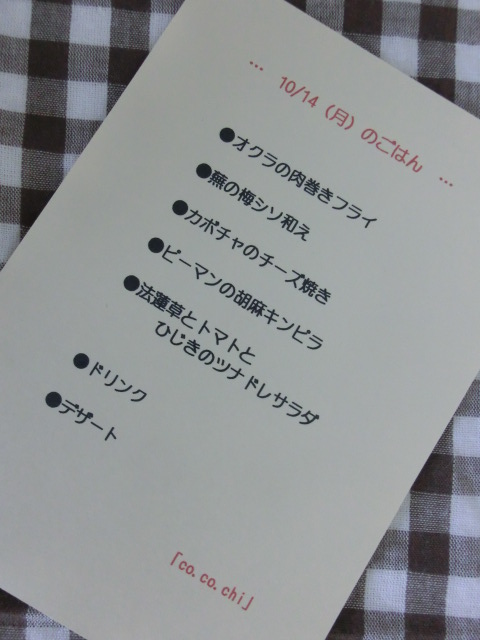 … 10/14 (月) のごはん …
●オクラの肉巻きフライ
●蕪の梅シソ和え
●カボチャのチーズ焼き
●ピーマンの胡麻キンピラ
●法蓮草とトマトと
ひじきのツナドレサラダ
●ドリンク
●デザート
「co.co.chi」